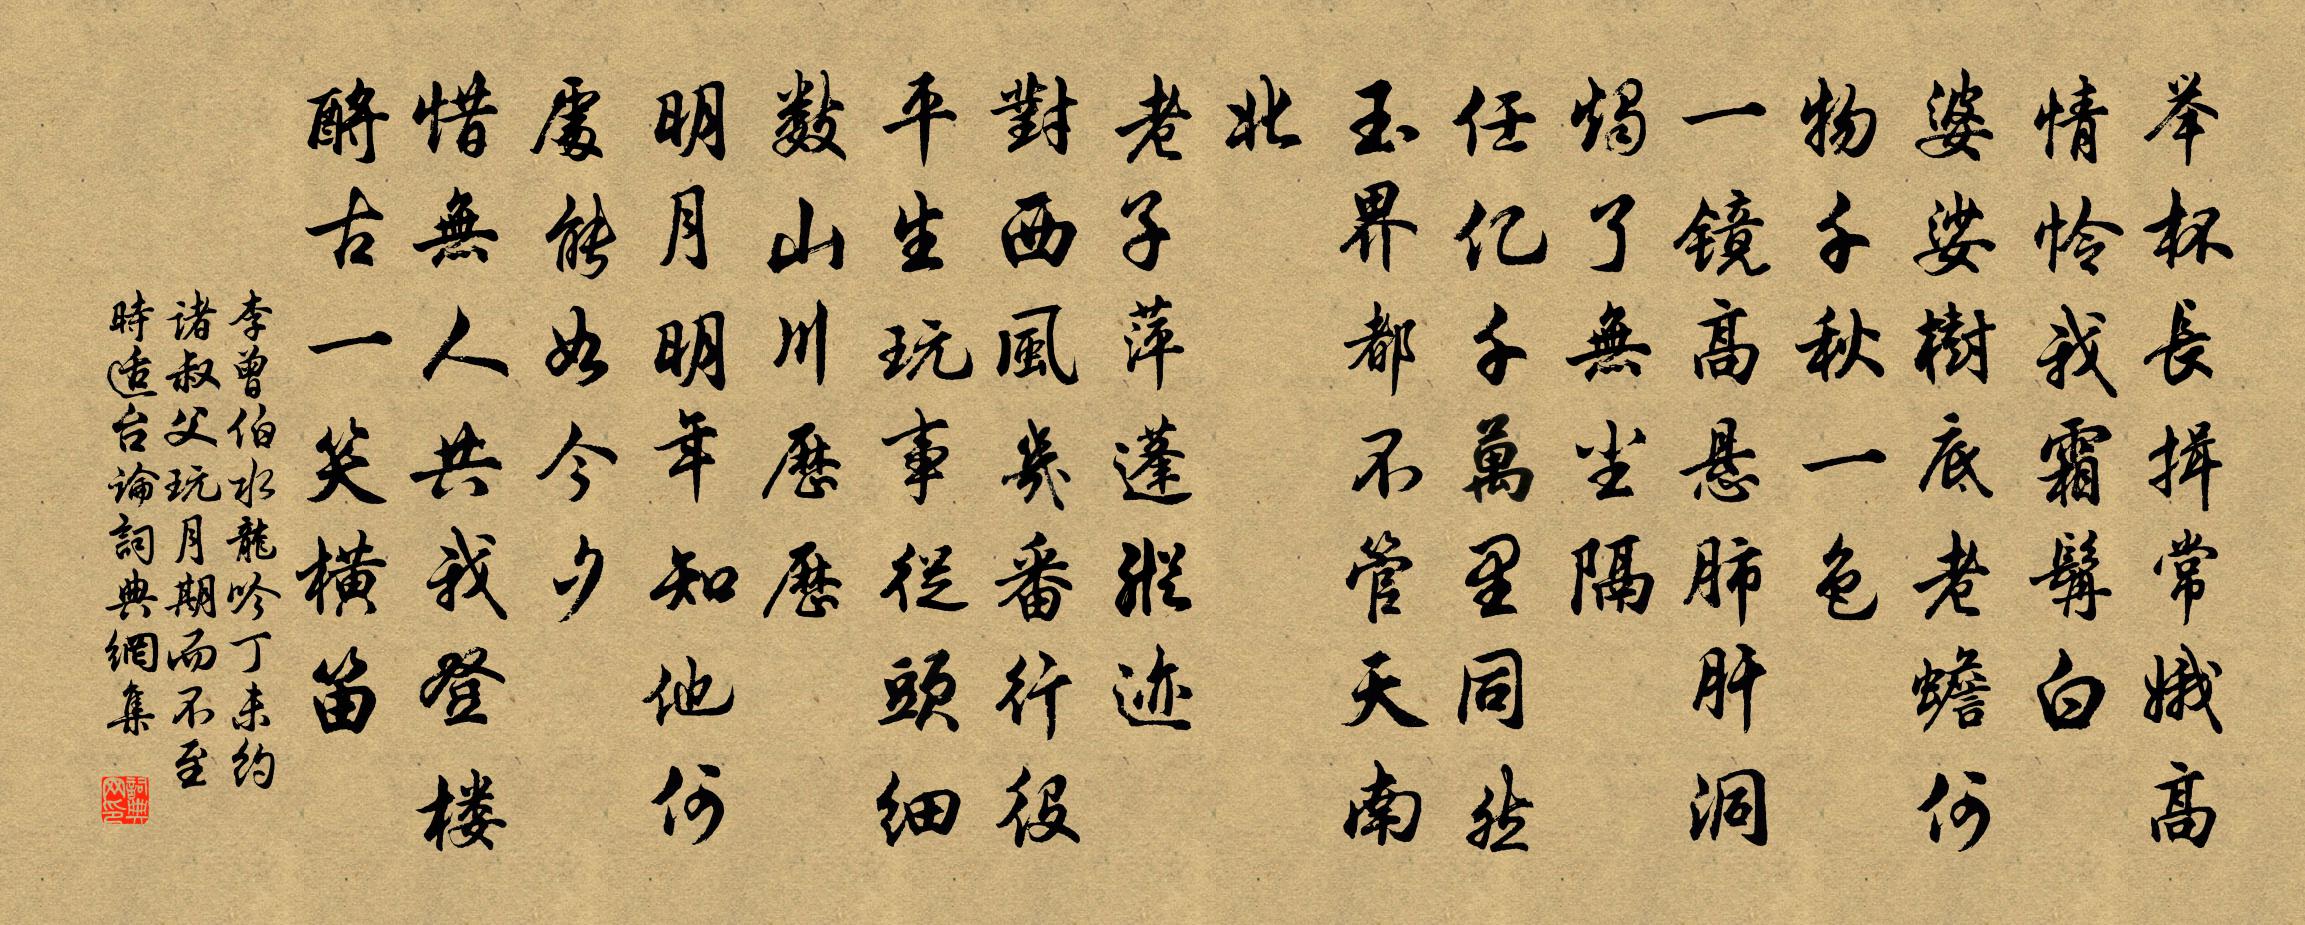 举杯長揖常娥高
情怜我霜鬢白
婆娑樹底老蟾何
物千秋一色
一镜高悬肺肝洞
燭了無尘隔
任亿千萬里同然
玉界都不管天南
北
老子萍蓬蹤迹
對西風幾番行役
平生玩事從頭細
数山川歷歷
明月明年知他何
處能如今夕
惜無人共我登楼
酹古一笑横笛
李曾伯水龍吟丁未約
诸叔父玩月期而不至
時适台論詞典網集
詞典网印